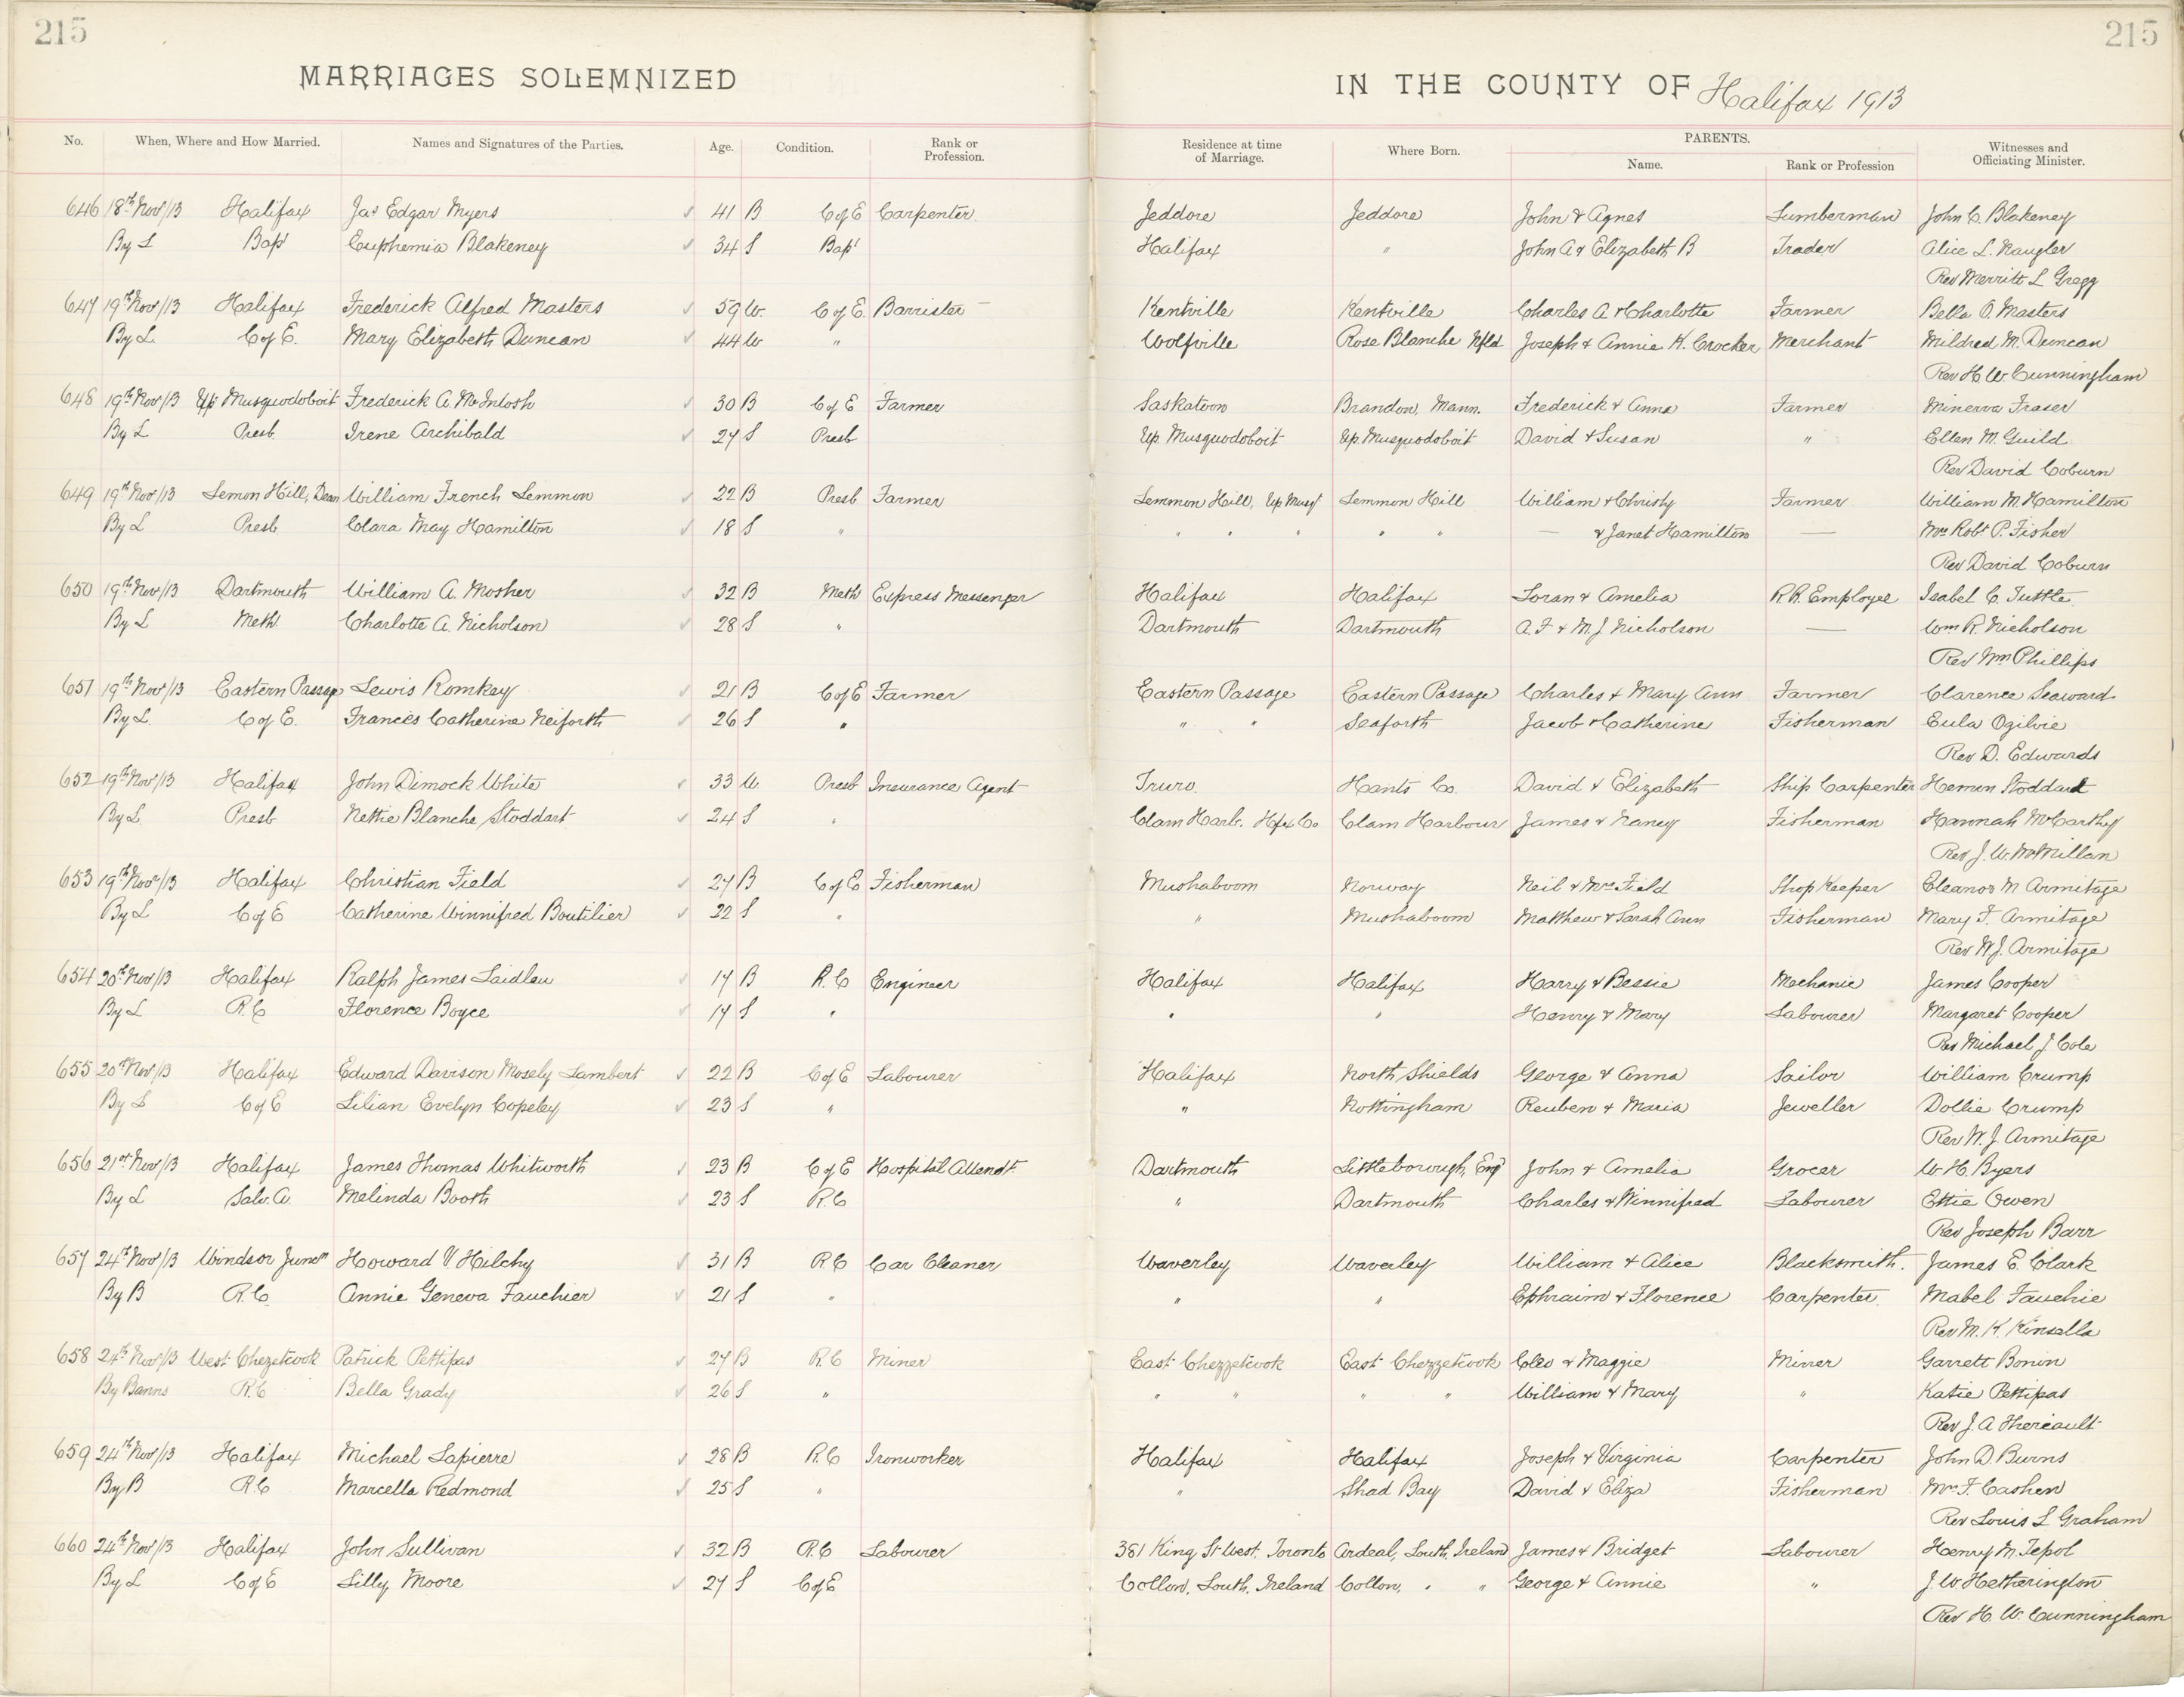 215 215
MARRIAGES SOLEMNIZED IN THE COUNTY OF Halifax 1913
No. When, Where and How Married. Names and Signatures of the Parties. Age. Condition. Rank or Profession. Residence at time of Marriage. Where Born. PARENTS. Name. Rank or Profession Witnesses and Officiating Minister.
646 18th Nov/13 Halifax Jas Edgar Myers ✓ 41 B C of E Carpenter Jeddore Jeddore John & Agnes Lumberman John C. Blakeney
By L Bapt Euphemia Blakeney ✓ 34 S Bapt Halifax " John A & Elizabeth B Trader Alice L. Naugler
Rev Merritt L Gregg
647 19th Nov/13 Halifax Frederick Alfred Masters ✓ 59 W. C of E. Barrister Kentville Kentville Charles A. & Charlotte Farmer Bella O. Masters
By L. C of E. Mary Elizabeth Duncan ✓ 44 W " Wolfville Rose Blanche Nfld Joseph & Annie K. Crocker Merchant Mildred M. Duncan
Rev H. W. Cunningham
648 19th Nov/13 Up Musquodoboit Frederick A. McIntosh ✓ 30 B C of E Farmer Saskatoon Brandon, Mann. Frederick & Anna Farmer Minerva Fraser
By L Presb Irene Archibald ✓ 27 S Presb Up. Musquodoboit Up. Musquodoboit David & Susan " Ellen M. Guild
Rev David Coburn
649 19th Nov/13 Lemon Hill, Dean William French Lemmon ✓ 22 B Presb Farmer Lemmon Hill, Up Musqt Lemmon Hill William & Christy Farmer William M. Hamilton
By L Presb Clara May Hamilton ✓ 18 S " " " " " " — & Janet Hamilton — Mrs Robt P. Fisher
Rev David Coburn
650 19th Nov/13 Dartmouth William A. Mosher ✓ 32 B Meth Express Messenger Halifax Halifax Loran & Amelia R.R. Employee Isabel C. Tuttle
By L Meth Charlotte A. Nicholson ✓ 28 S " Dartmouth Dartmouth A. F & M. J Nicholson — Wm R. Nicholson
Rev Wm Phillips
651 19th Nov/13 Eastern Passage Lewis Romkey ✓ 21 B C of E Farmer Eastern Passage Eastern Passage Charles & Mary Ann Farmer Clarence Seaward
By L. C of E. Frances Catherine Neiforth ✓ 26 S " " " Seaforth Jacob & Catherine Fisherman Eula Ogilvie
Rev D. Edwards
652 19th Nov/13 Halifax John Dimock White ✓ 33 W Presb Insurance Agent Truro. Hants Co. David & Elizabeth Ship Carpenter Hemon Stoddard
By L Presb Nettie Blanche Stoddart ✓ 24 S " Clam Harb. Hfx Co Clam Harbour James & Nancy Fisherman Hannah McCarthy
Rev J. W. McMillan
653 19th Nov/13 Halifax Christian Field ✓ 27 B C of E Fisherman Mushaboom Norway Neil & Mrs Field Shop Keeper Eleanor M Armitage
By L C of E Catherine Winnifred Boutilier ✓ 22 S " " Mushaboom Matthew & Sarah Ann Fisherman Mary F. Armitage
Rev W. J. Armitage
654 20th Nov/13 Halifax Ralph James Laidlau ✓ 17 B R.C Engineer Halifax Halifax Harry & Bessie Mechanic James Cooper
By L R.C Florence Boyce ✓ 17 S " " " Henry & Mary Labourer Margaret Cooper
Rev Michael J Cole
655 20th Nov/13 Halifax Edward Davison Mosely Lambert ✓ 22 B C of E Labourer Halifax North Shields George & Anna Sailor William Crump
By L C of E Lilian Evelyn Copeley ✓ 23 S " " Nottingham Reuben & Maria Jeweller Dollie Crump
Rev W. J. Armitage
656 21st Nov/13 Halifax James Thomas Whitworth ✓ 23 B C of E Hospital Attendt. Dartmouth Littleborough, Eng John & Amelia Grocer W H. Byers
By L Salv. A. Melinda Booth ✓ 23 S R.C " Dartmouth Charles & Winnifred Labourer Ettie Owen
Rev Joseph Barr
657 24th Nov/13 Windsor Juncn Howard V. Hilchy ✓ 31 B R.C Car Cleaner Waverley Waverley William & Alice Blacksmith. James E. Clark
By B R.C. Annie Geneva Fauchier ✓ 21 S " " " Ephraim & Florence Carpenter Mabel Fauchie
Rev M. K. Kinsella
658 24th Nov/13 West Chezetcook Patrick Pettipas ✓ 27 B R.C Miner East Chezzetcook East Chezzetcook Cleo & Maggie Miner Garrett Bonin
By Banns R.C Bella Grady ✓ 26 S " " " " " William & Mary " Katie Pettipas
Rev J. A Theriault
659 24th Nov/13 Halifax Michael Lapierre ✓ 28 B R.C Ironworker Halifax Halifax Joseph & Virginia Carpenter John D. Burns
By B R.C Marcella Redmond ✓ 25 S " " Shad Bay David & Eliza Fisherman Mrs F. Cashen
Rev Louis L Graham
660 24th Nov/13 Halifax John Sullivan ✓ 32 B R.C Labourer 381 King St West, Toronto Ardeal, South, Ireland James & Bridget Labourer Henry M. Tepol
By L C of E Lilly Moore ✓ 27 S C of E Collon, South, Ireland Collon, " " George & Annie " J. W Hetherington
Rev H. W. Cunningham